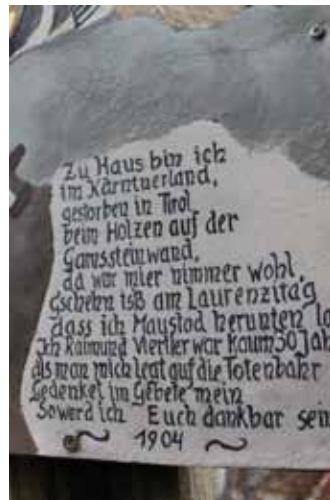 Zu Haus bin ich
im Kärntnerland,
gestorben in Tirol
beim Holzen auf der
Gamssteinwand,
da war mier nimmer wohl,
Gschehn isß am Laurenzitag
dass ich Maustod herunten la
Ich Raimund Viertler war Kaum 30 Jah
als man mich legt auf die Totenbahr
Gedenket im Gebete mein
So werd ich Euch dankbar sein
1904